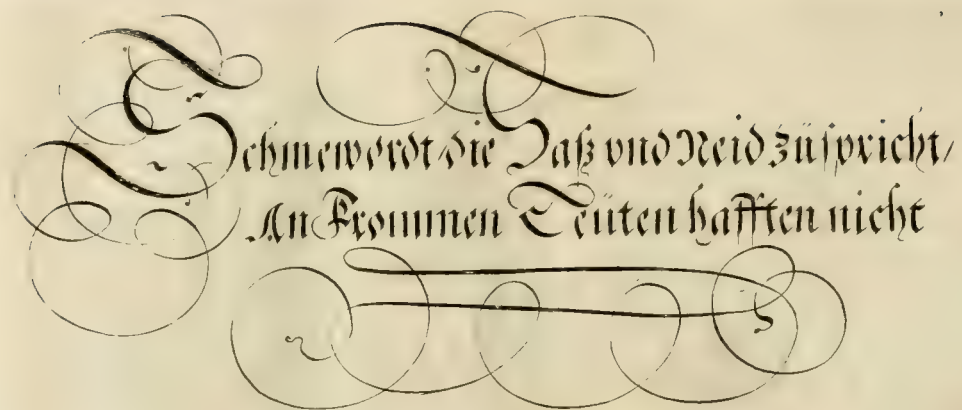 Schmewordt/die Haß vnd Neid züspricht/
An Frommen Leüten hafften nicht